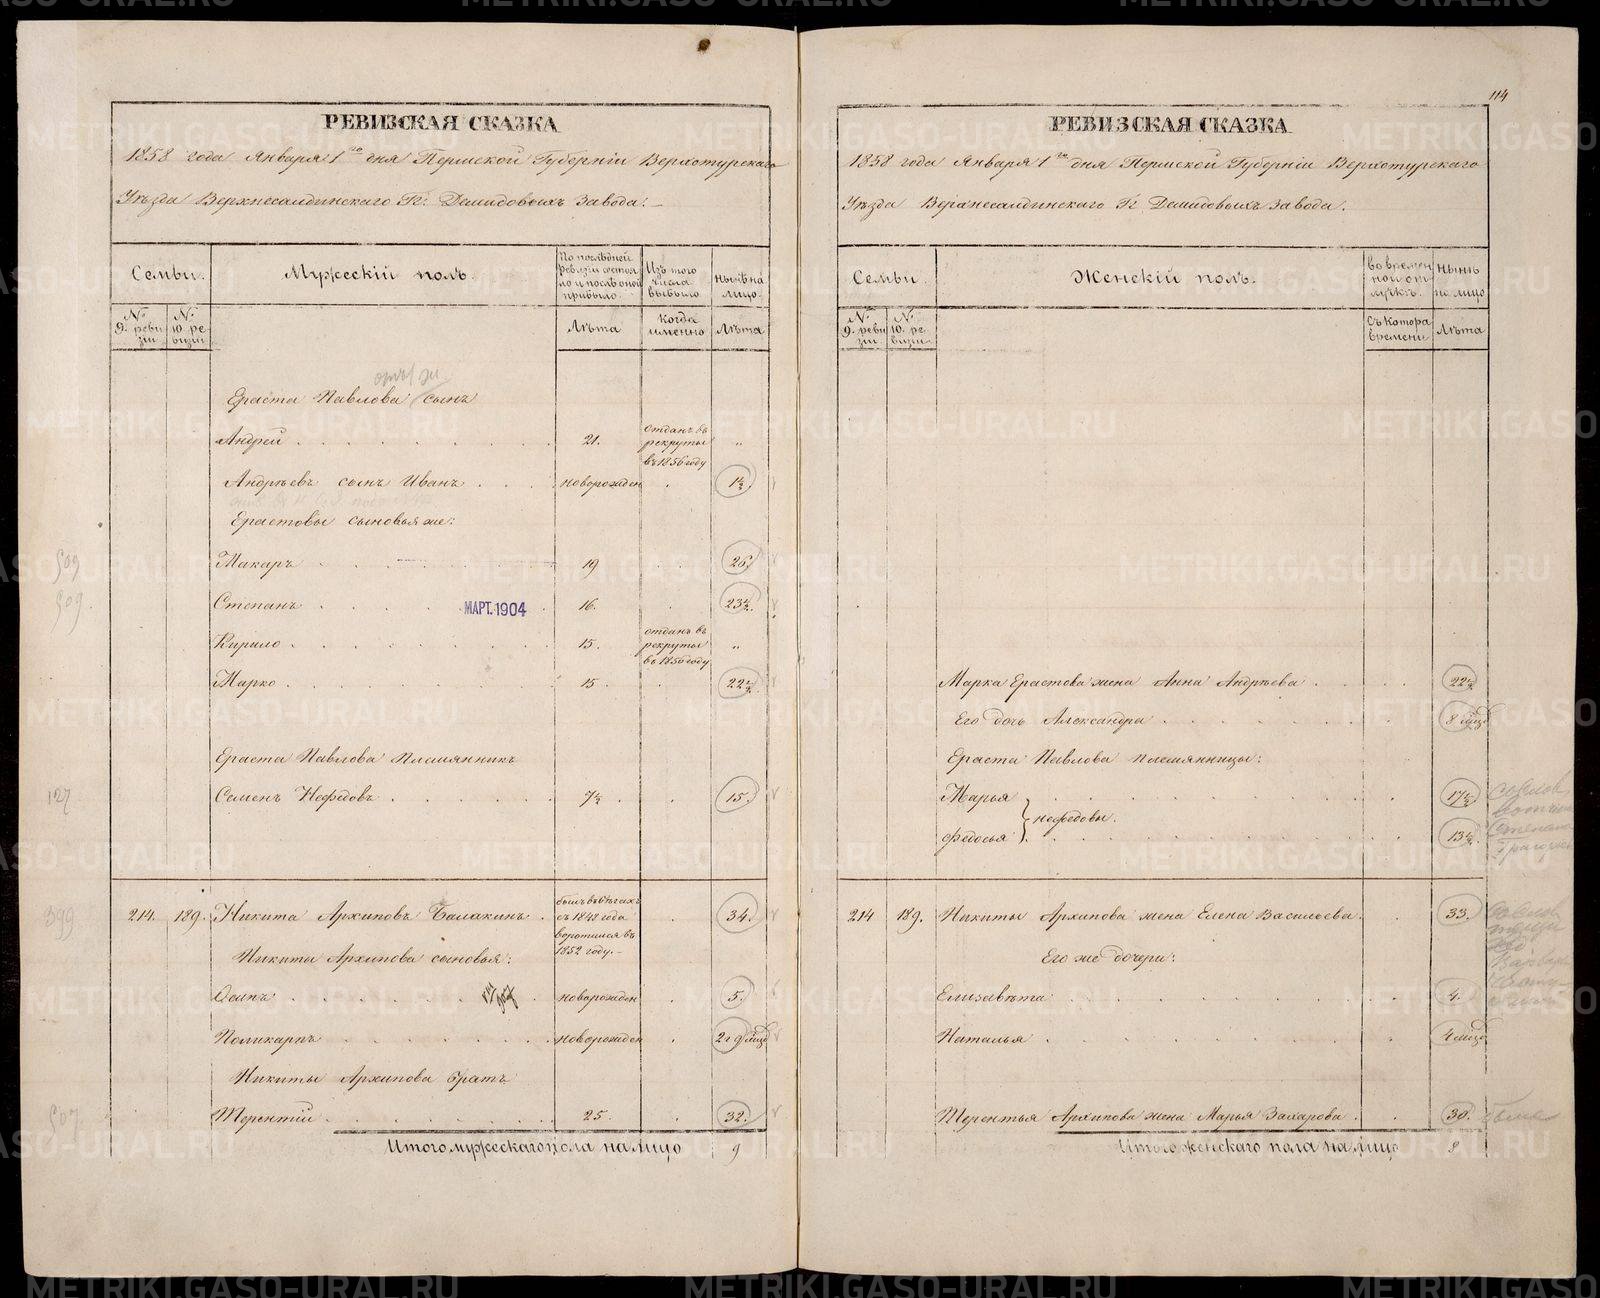 114
РЕВИЗСКАЯ СКАЗКА
1858 года Января 1го дня Пермской Губерніи Верхотурскаго
Уѣзда Верхнесалдинскаго Гг. Демидовыхъ Завода.
Семьи.
Мужескій полъ.
По послѣдней ревизіи состояло и послѣ оной прибыло.
Изъ того числа выбыло
Нынѣ на лицо.
№ 9. ревизіи
№ 10. ревизіи
Лѣта
Когда именно
Лѣта
Ераста Павлова сынъ
Андрей 21. отданъ въ рекруты въ 1856 году „
Андреевъ сынъ Иванъ новорожден 1½.
Ерастовы сыновья же:
509 Макаръ 19 26
509. Степанъ МАРТ. 1904 16. 23½.
Кирило 15. отданъ въ рекруты въ 1856 году „
Марко 15. 22½.
Ераста Павлова племянникъ
127 Семенъ Нефедовъ 7½. 15.
399 214. 189. Никита Архиповъ Балакинъ былъ въ бѣгахъ съ 1848 года воротился въ 1852 году. 34.
Никиты Архипова сыновья:
Осипъ новорожден 5.
Поликарпъ новорожден 2 и 9 мѣсц
Никиты Архипова братъ
507 Терентій 25. 32.
Итого мужескаго пола на лицо 9
РЕВИЗСКАЯ СКАЗКА
1858 года Января 1го дня Пермской Губерніи Верхотурскаго
Уѣзда Верхнесалдинскаго Гг. Демидовыхъ Завода.
Семьи.
Женскій полъ.
Во временной отлучкѣ.
Нынѣ на лицо
№ 9. ревизіи
№ 10. ревизіи
Съ котора времени
Лѣта
Марка Ерастова жена Анна Андрѣева 22½
Его дочь Александра 8 мѣсц
Ераста Павлова племянницы:
Марья 17½
нефедовы.
Федосья 13½.
214 189. Никиты Архипова жена Елена Васильева 33.
Его же дочери:
Елизавѣта 4.
Наталья 4 мѣсц
Терентья Архипова жена Марья Захарова 30.
Итого женскаго пола на лицо 8
METRIKI.GASO-URAL.RU